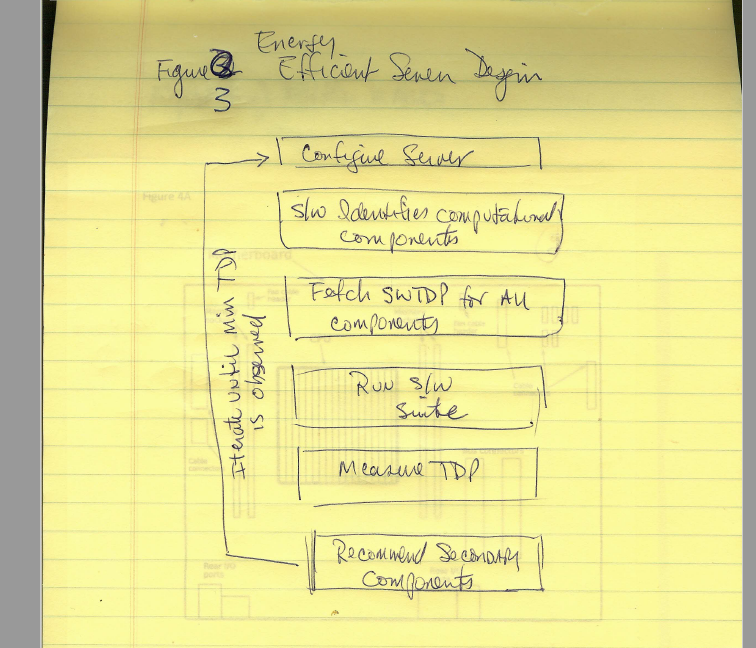 Energy
Figure Efficient Server Desgin
3
Configure Server
S/W Identifies computational
components
Fetch SWTDP for All
components
Run S/W
Suite
Measure TDP
Recommend Secondary
Components
Iterate until min TDP
is observed
Figure 4A
Rear I/O
ports